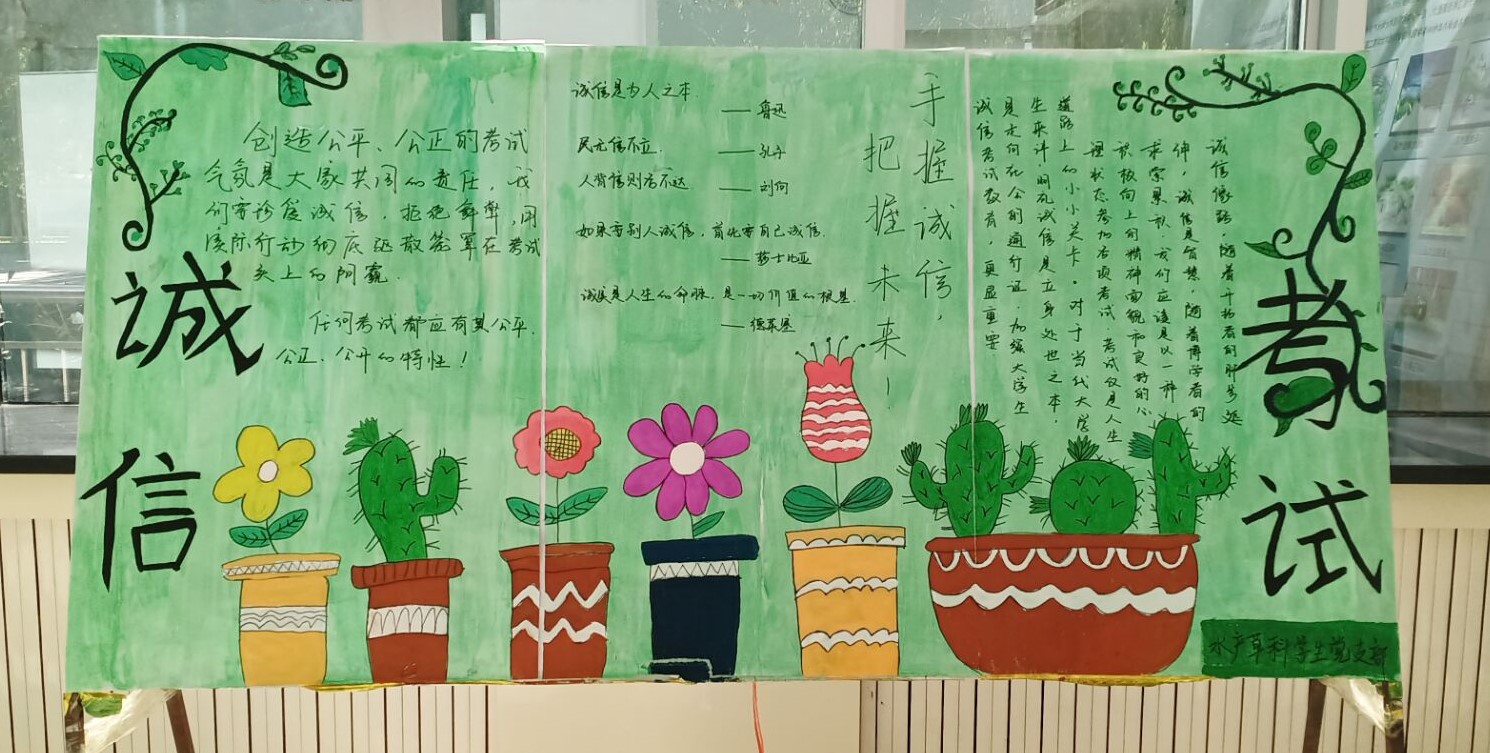 诚信
创造公平、公正的考试
气氛是大家共同的责任,我
们要诊爱诚信,拒绝舞弊,用
实际行动彻底驱散笼罩在考试
头上的阴霾.
任何考试都应有其公平、
公正、公开的特性!
诚信是为人之本.
——鲁迅
民无信不立.
——孔子
人背信则名不达
——刘向
如果要别人诚信,首先要自己诚信.
——莎士比亚
诚实是人生的命脉,是一切价值的根基.
——德莱塞
手握诚信,
把握未来!
诚信像路,随着开拓者的脚步延
伸,诚信是智慧,随着博学者的
求索累积.我们应该是以一种
积极向上的精神面貌和良好的心
理状态参加各项考试.考试仅是人生
道路上的小小关卡.对于当代大学
生来讲明礼诚信是立身处世之本.
是走向社会的通行证.加强大学生
诚信考试教育,更显重要
考试
水产草科学生党支部